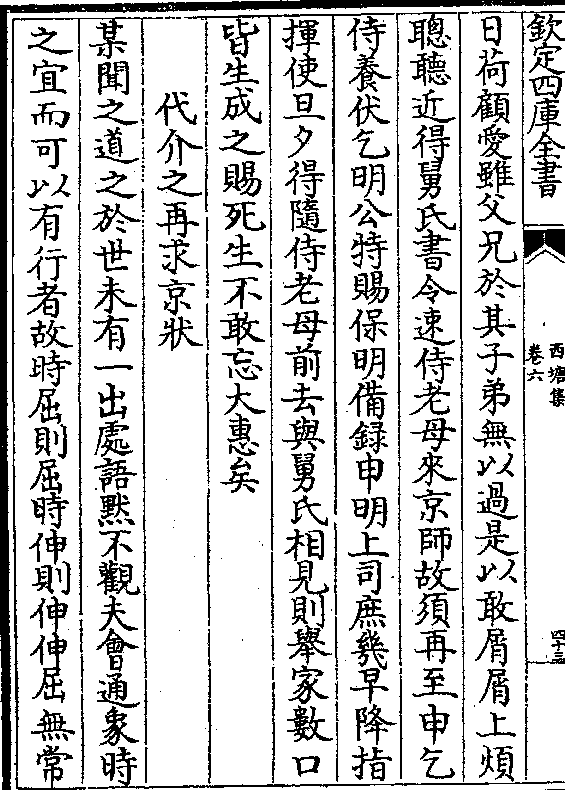 欽定四庫全書
西塘集
卷六
四十三
日荷顧愛雖父兄於其子弟無以過是以敢屑屑上煩
聰聽近得舅氏書令速侍老母來京師故須再至申乞
侍養伏乞明公特賜保明備録申明上司庶幾早降指
揮使旦夕得隨侍老母前去與舅氏相見則舉家數口
皆生成之賜死生不敢忘大惠矣
代介之再求京狀
某聞之道之於世未有一出處語黙不觀夫會通象時
之宜而可以有行者故時屈則屈時伸則伸伸屈無常